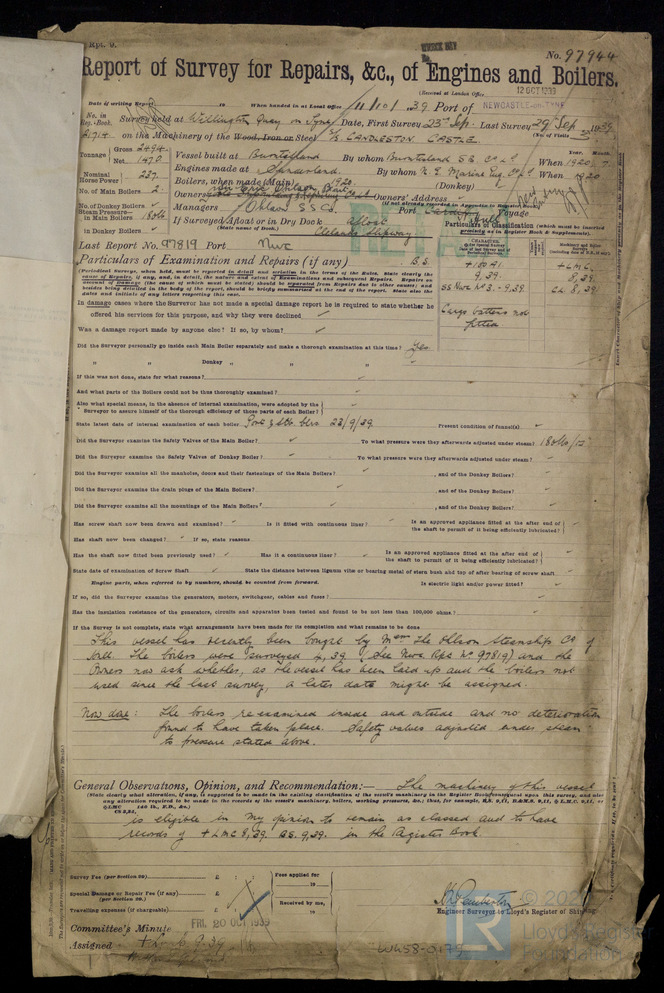 Rpt. 9.
No. 97944
Report of Survey for Repairs, &c., of Engines and Boilers.
(Received at London Office 12 OCT 1939
Date of writing Report 19 When handed in at Local Office 11/10/1939 Port of NEWCASTLE-on-TYNE
No. in Reg. Book. Survey held at Willington Quay on Tyne Date, First Survey 23rd Sep. Last Survey 29 Sep 1939
on the Machinery of the Wood, Iron or Steel CANDLESTON CASTLE
(No. of Visits
Tonnage Gross 2494 Net 1470
Vessel built at Burntisland By whom Burntisland S.B. Co Ld When 1920 7
Year. Month.
Nominal Horse Power 237
Engines made at Sunderland By whom N.E. Marine Eng. Co Ld When 1920
No. of Main Boilers 2
Boilers, when made (Main) 1920 (Donkey)
Owners Owners' Address
(If not already recorded in Appendix to Register Book.)
No. of Donkey Boilers
Managers Ohlson S S Co. Port Voyage
Steam Pressure in Main Boilers 180 lb
in Donkey Boilers
If Surveyed Afloat or in Dry Dock afloat
(State name of Dock.) Clelands Slipway
Particulars of Classification (which must be inserted precisely as in Register Book & Supplements).
Last Report No. 97819 Port Nwc
Particulars of Examination and Repairs (if any) B.S.
+100A1
9.39.
SS Nwc No 3. - 9.39.
Cargo battens not fitted
+LMC.
8,39
(Periodical Surveys, when held, must be reported in detail and seriatim in the terms of the Rules. State clearly the cause of Repairs, if any, and, in detail, the nature and extent of Examinations and subsequent Repairs. Repairs on account of damage (the cause of which must be stated) should be separated from Repairs due to other causes; and besides being detailed in the body of the report, should be briefly summarised at the end of the report. State also the dates and initials of any letters respecting this case.
In damage cases where the Surveyor has not made a special damage report he is required to state whether he
offered his services for this purpose, and why they were declined
Was a damage report made by anyone else? If so, by whom?
Did the Surveyor personally go inside each Main Boiler separately and make a thorough examination at this time? Yes
" " Donkey " " "
If this was not done, state for what reasons?
And what parts of the Boilers could not be thus thoroughly examined?
Also what special means, in the absence of internal examination, were adopted by the
Surveyor to assure himself of the thorough efficiency of those parts of each Boiler?
State latest date of internal examination of each boiler Port & Stb. blrs 23/9/39. Present condition of funnel(s)
Did the Surveyor examine the Safety Valves of the Main Boiler? To what pressure were they afterwards adjusted under steam? 180 lbs/□"
Did the Surveyor examine the Safety Valves of Donkey Boiler? To what pressure were they afterwards adjusted under steam?
Did the Surveyor examine all the manholes, doors and their fastenings of the Main Boilers? , and of the Donkey Boilers?
Did the Surveyor examine the drain plugs of the Main Boilers? , and of the Donkey Boilers?
Did the Surveyor examine all the mountings of the Main Boilers? , and of the Donkey Boilers?
Has screw shaft now been drawn and examined? Is it fitted with continuous liner? Is an approved appliance fitted at the after end of
the shaft to permit of it being efficiently lubricated?
Has shaft now been changed? If so, state reasons
Has the shaft now fitted been previously used? Has it a continuous liner? Is an approved appliance fitted at the after end of
the shaft to permit of it being efficiently lubricated?
State date of examination of Screw Shaft State the distance between lignum vitæ or bearing metal of stern bush and top of after bearing of screw shaft
Engine parts, when referred to by numbers, should be counted from forward. Is electric light and/or power fitted?
If so, did the Surveyor examine the generators, motors, switchgear, cables and fuses?
Has the insulation resistance of the generators, circuits and apparatus been tested and found to be not less than 100,000 ohms?
If the Survey is not complete, state what arrangements have been made for its completion and what remains to be done
This vessel has recently been bought by Messrs The Ohlson Steamship Co of
Hull. The boilers were surveyed 4,39 (See Nwc. Rpt No 97819) and the
Owners now ask whether, as the vessel has been laid up and the boilers not
used since the last survey, a later date might be assigned.
Now done: The boilers re-examined inside and outside and no deterioration
found to have taken place. Safety valves adjusted under steam
to pressure stated above.
General Observations, Opinion, and Recommendation:— The machinery of this vessel
(State clearly what alteration, if any, is suggested to be made in the existing classification of the vessel's machinery in the Register Book consequent upon this survey, and also
is eligible in my opinion to remain as classed and to have
records of +LMC 8,39. BS. 9,39. in the Register Book.
Survey Fee (per Section 29) £ : :
Special Damage or Repair Fee (if any) £ : :
(per Section 29.)
Travelling expenses (if chargeable) £ : :
Fees applied for
19
Received by me,
19
Engineer Surveyor to Lloyd's Register of Shipping.
Committee's Minute FRI. 20 OCT 1939
Assigned
W658-0175
LR
Lloyd's Register
Foundation